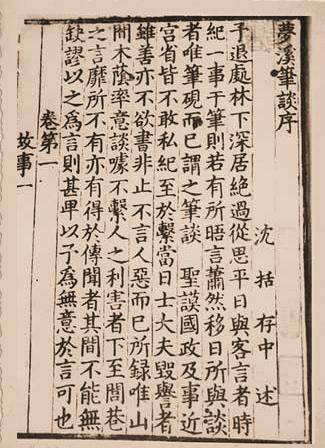 夢溪筆談序
沈括存中述
予退處林下深居絕過從思平日與客言者時
紀一事于筆則若有所晤言蕭然移日所與談
者唯筆硯而已謂之筆談 聖謨國政及事近
宮省皆不敢私紀至於繫當日士大夫毀譽者
雖善亦不欲書非止不言人惡而已所録唯山
間木蔭率意談噱不繫人之利害者下至閭巷
之言靡所不有亦有得於傳聞者其間不能無
缺謬以之為言則甚卑以予為無意於言可也
卷第一
故事一